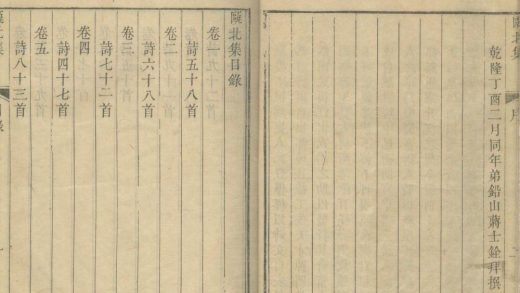 甌北集 序
乾隆丁酉二月同年弟鉛山蔣士銓拜撰
甌北集目錄
卷一
詩五十八首
卷二
詩六十八首
卷三
詩七十二首
卷四
詩四十七首
卷五
詩八十三首
甌北集 目錄 一